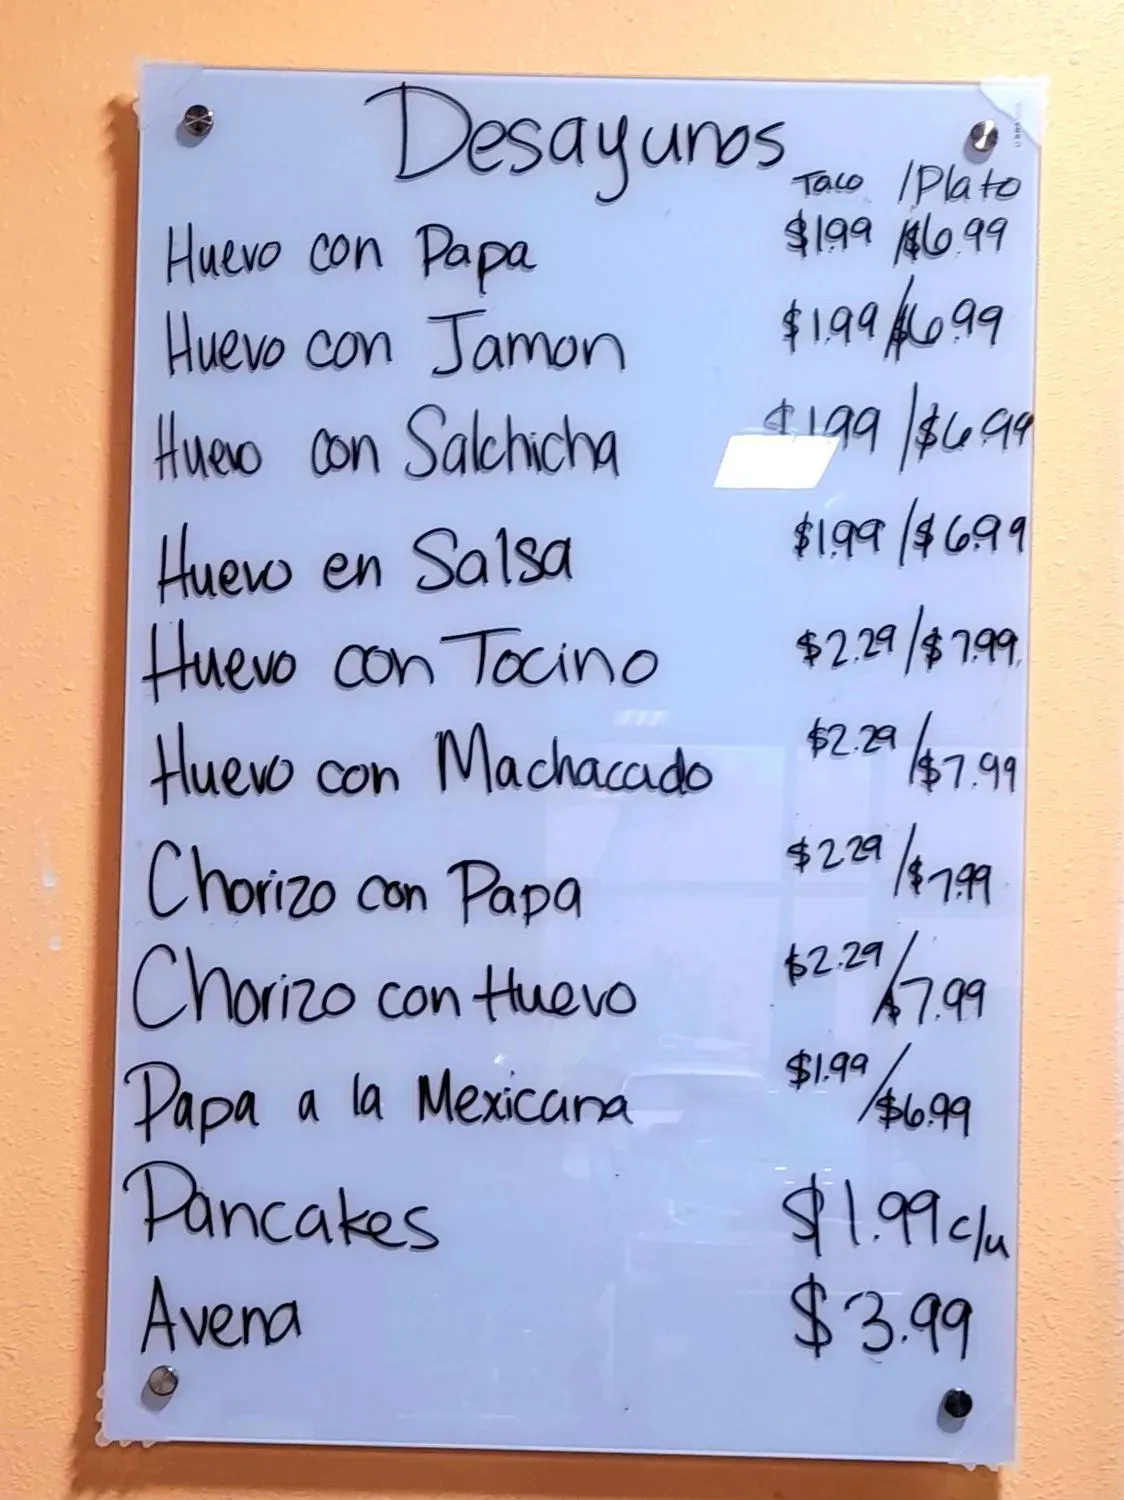 Desayunos
Taco / Plato
Huevo con Papa $1.99 / $6.99
Huevo con Jamon $1.99 / $6.99
Huevo con Salchicha $1.99 / $6.99
Huevo en Salsa $1.99 / $6.99
Huevo con Tocino $2.29 / $7.99
Huevo con Machacado $2.29 / $7.99
Chorizo con Papa $2.29 / $7.99
Chorizo con Huevo $2.29 / $7.99
Papa a la Mexicana $1.99 / $6.99
Pancakes $1.99 c/u
Avena $3.99